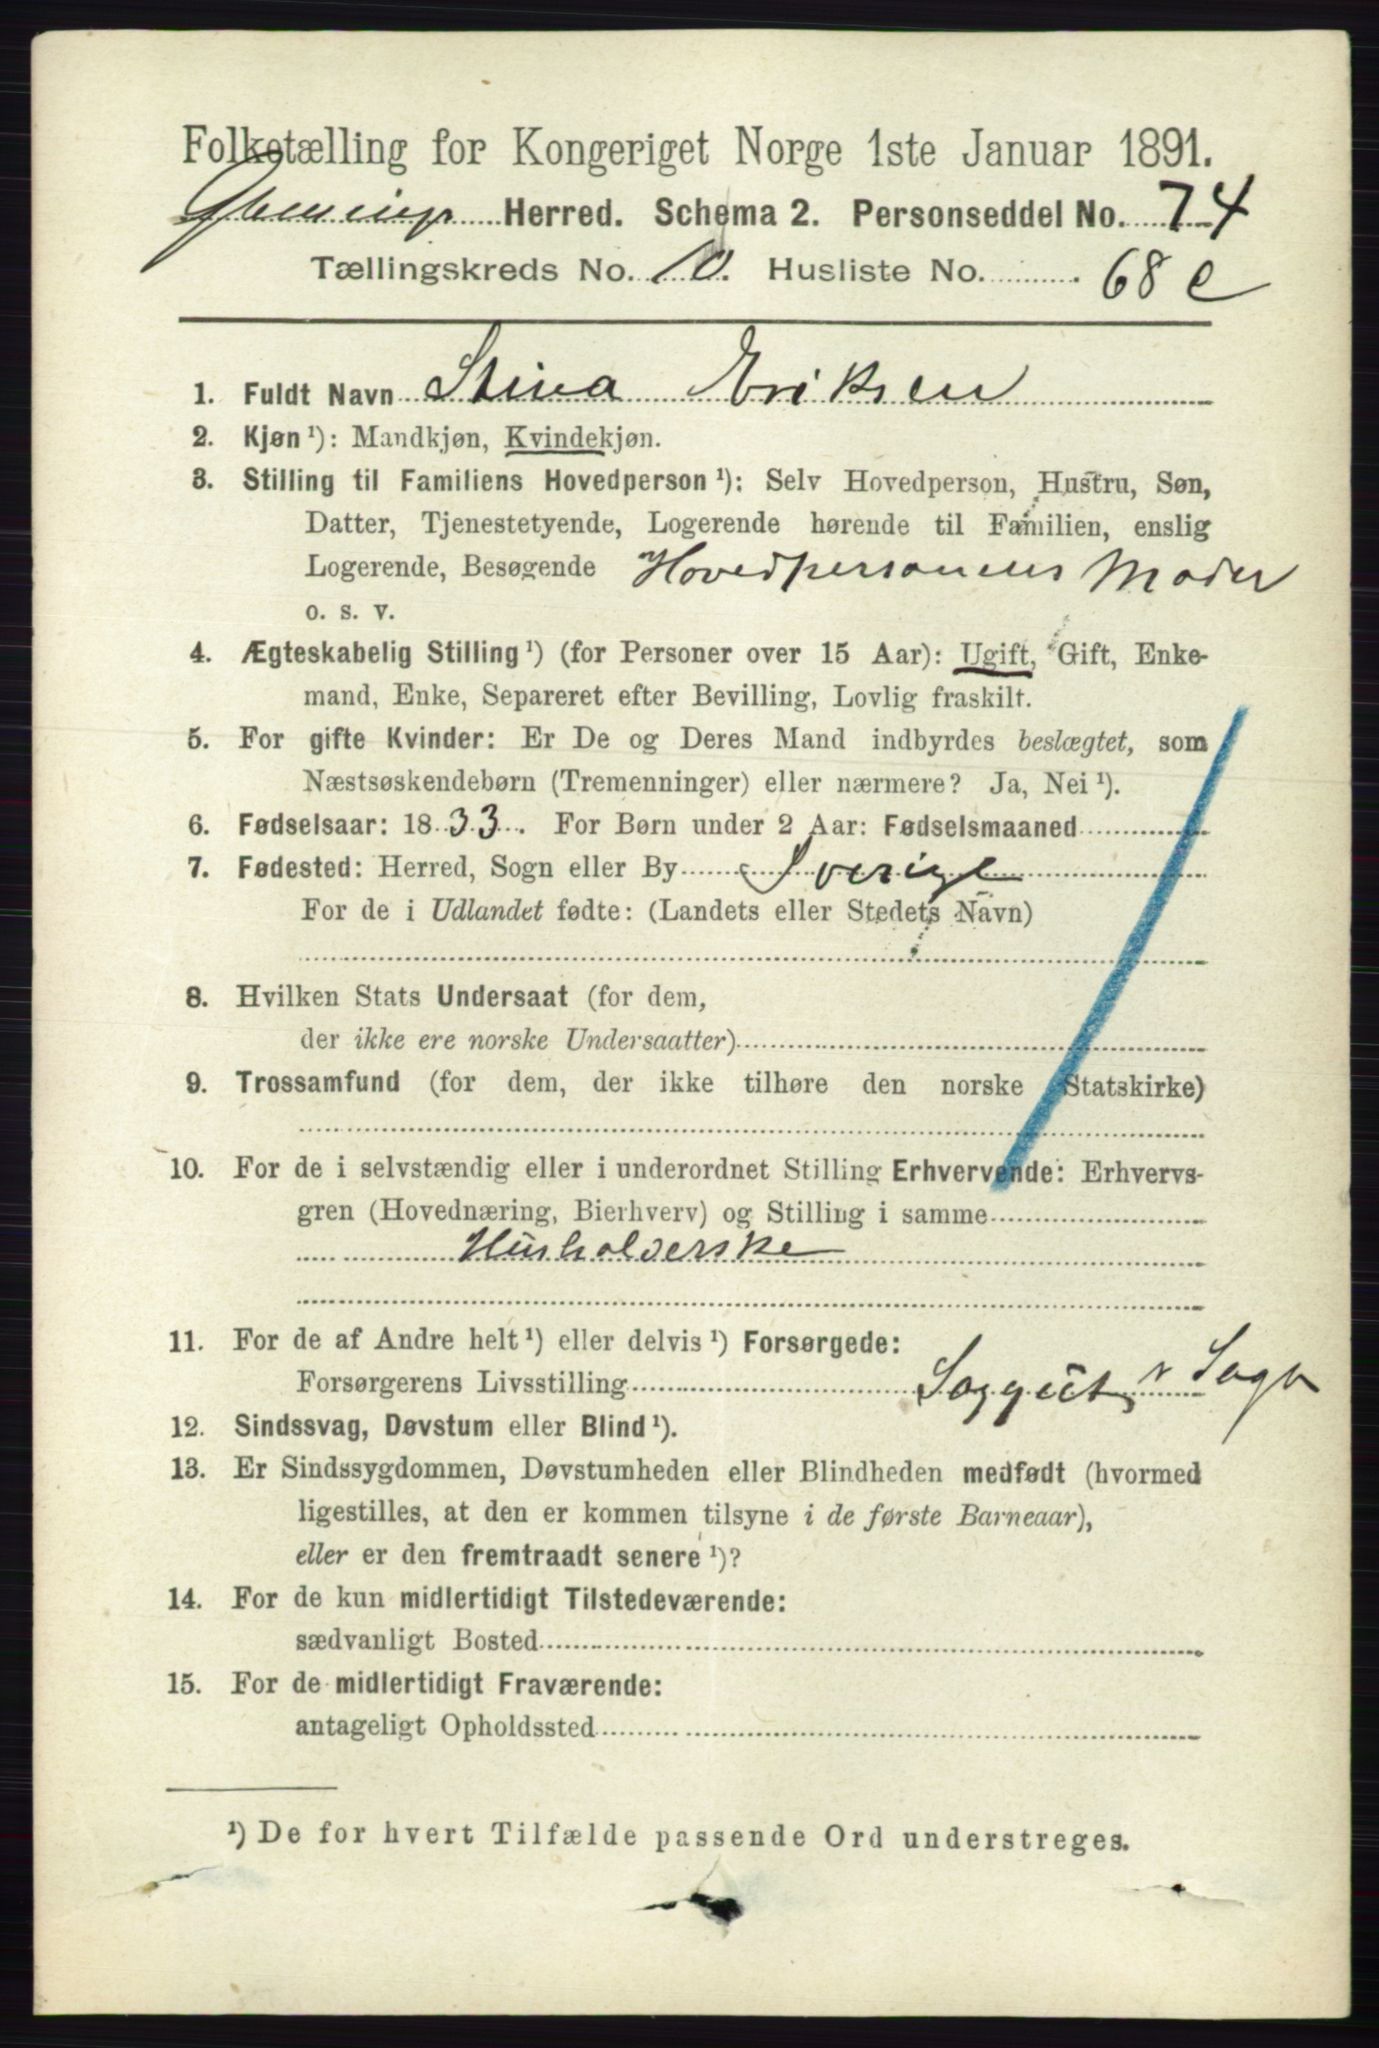 Folketælling for Kongeriget Norge 1ste Januar 1891.
Glemminge Herred. Schema 2. Personseddel No. 74
Tællingskreds No. 10. Husliste No. 68 c
1. Fuldt Navn Stina Eriksen
2. Kjøn ¹): Mandkjøn, Kvindekjøn.
3. Stilling til Familiens Hovedperson ¹): Selv Hovedperson, Hustru, Søn,
Datter, Tjenestetyende, Logerende hørende til Familien, enslig
Logerende, Besøgende Hovedpersonens Moder
o. s. v.
4. Ægteskabelig Stilling ¹) (for Personer over 15 Aar): Ugift, Gift, Enke-
mand, Enke, Separeret efter Bevilling, Lovlig fraskilt.
5. For gifte Kvinder: Er De og Deres Mand indbyrdes beslægtet, som
Næstsøskendebørn (Tremenninger) eller nærmere? Ja, Nei ¹).
6. Fødselsaar: 1833. For Børn under 2 Aar: Fødselsmaaned
7. Fødested: Herred, Sogn eller By Sverige
For de i Udlandet fødte: (Landets eller Stedets Navn)
8. Hvilken Stats Undersaat (for dem,
der ikke ere norske Undersaatter)
9. Trossamfund (for dem, der ikke tilhøre den norske Statskirke)
10. For de i selvstændig eller i underordnet Stilling Erhvervende: Erhvervs-
gren (Hovednæring, Bierhverv) og Stilling i samme
Husholderske
11. For de af Andre helt ¹) eller delvis ¹) Forsørgede:
Forsørgerens Livsstilling
12. Sindssvag, Døvstum eller Blind ¹).
13. Er Sindssygdommen, Døvstumheden eller Blindheden medfødt (hvormed
ligestilles, at den er kommen tilsyne i de første Barneaar),
eller er den fremtraadt senere ¹)?
14. For de kun midlertidigt Tilstedeværende:
sædvanligt Bosted
15. For de midlertidigt Fraværende:
antageligt Opholdssted
¹) De for hvert Tilfælde passende Ord understreges.